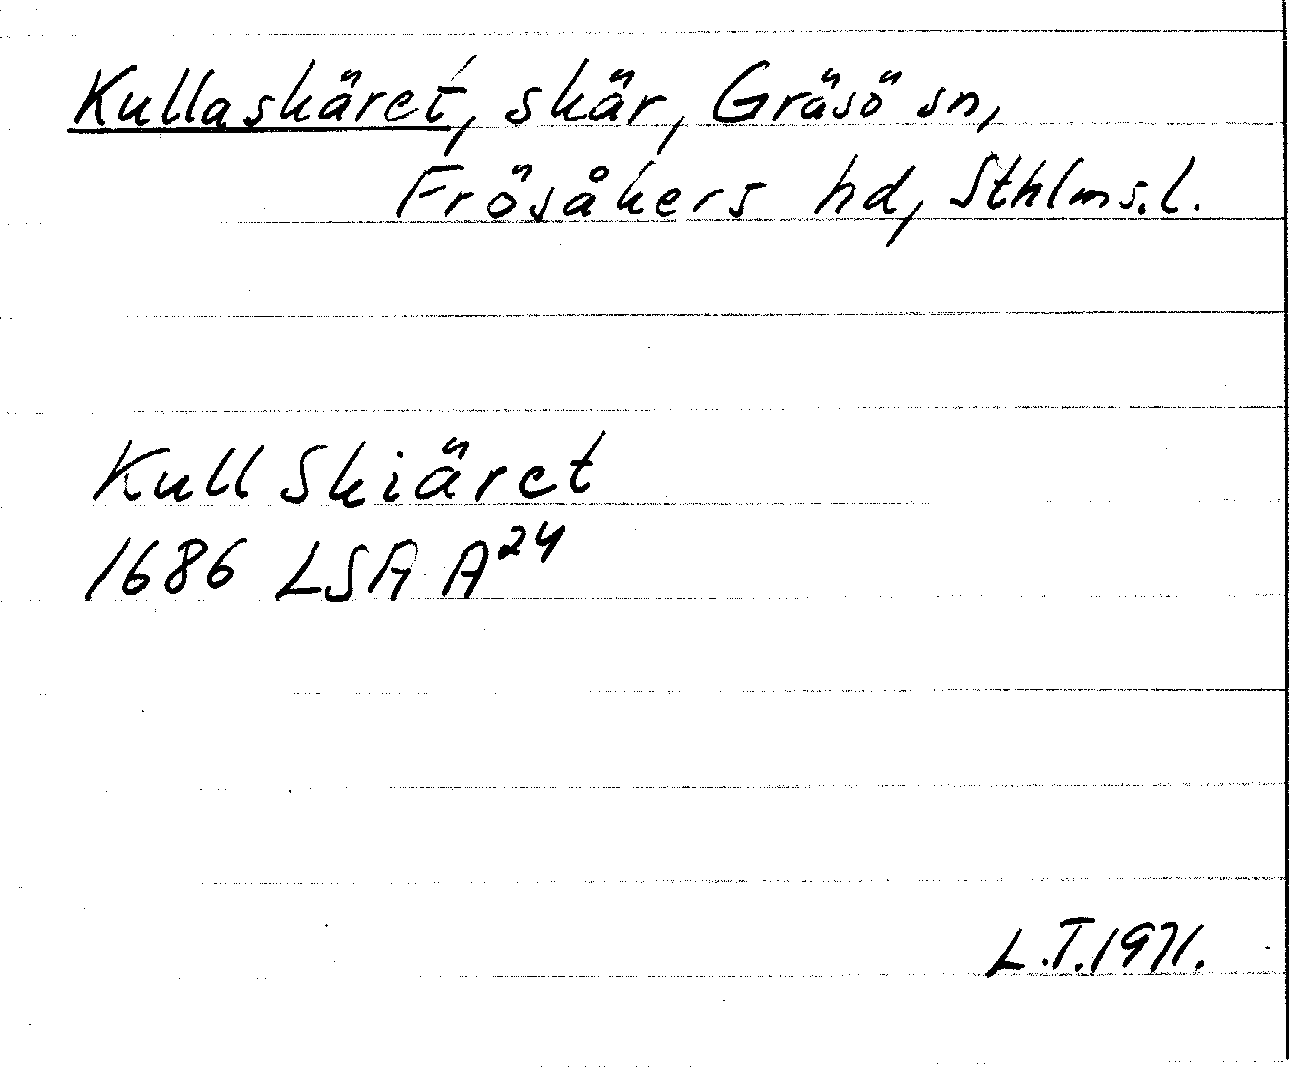 Kullaskäret, skär, Gräsö sn,
Frösåkers hd, Sthlms.l.
Kull Skiäret
1686 LSA A24
L.T.1971.